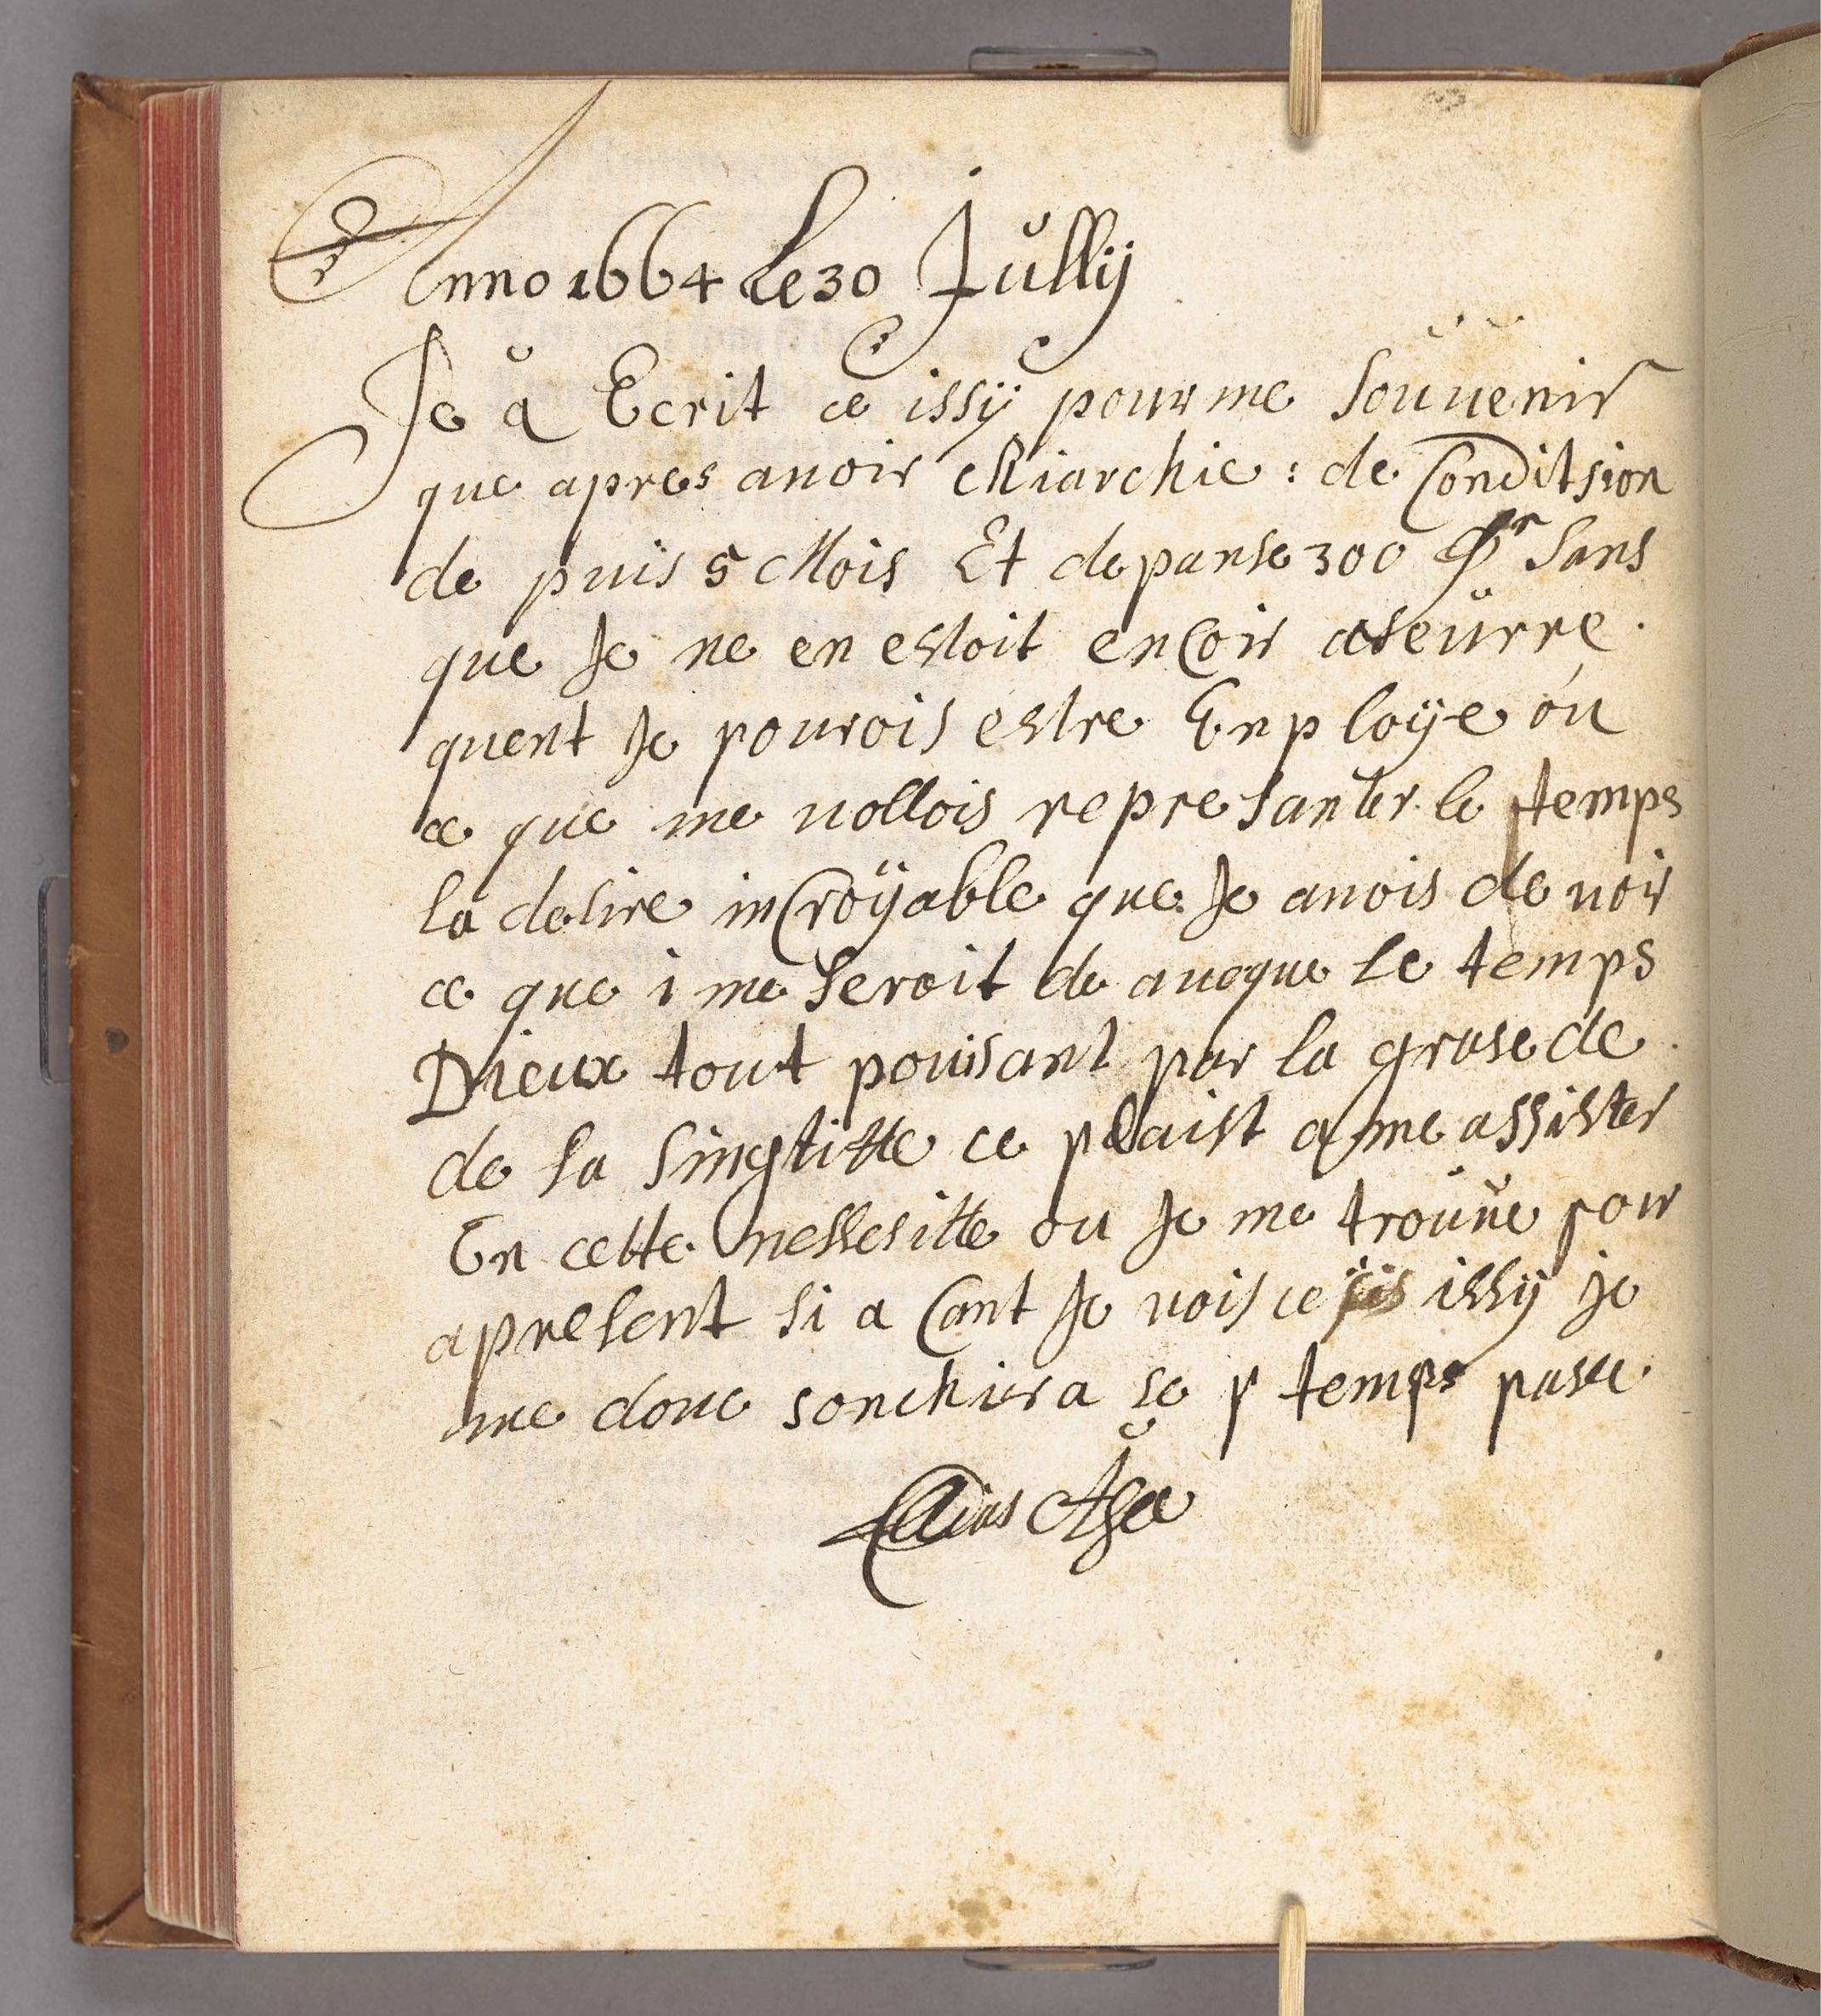 Anno 1664 Le 30 Jŭllij
Je ă Ecrit ce issÿ pour me souuenir
que apres auoir chiarchie : de Conditsion
de puis 5 Mois Et depanse 300 sans
que Je ne en estoit encoir aseŭrre.
quent Je pourois estre Enploÿe ou
ce que me vollois represanter le temps
la desire incroÿable que Je auois de uoir
ce que i me seroit de aueque le temps
Dieux tout pouisant par la grase de
de sa singtitte ce plaist a me assister
En cette nessesitte ou Je me trouue pour
apresent si a Cant Je uois ce issÿ je
me doue sonchiera se temps passe.
Elias